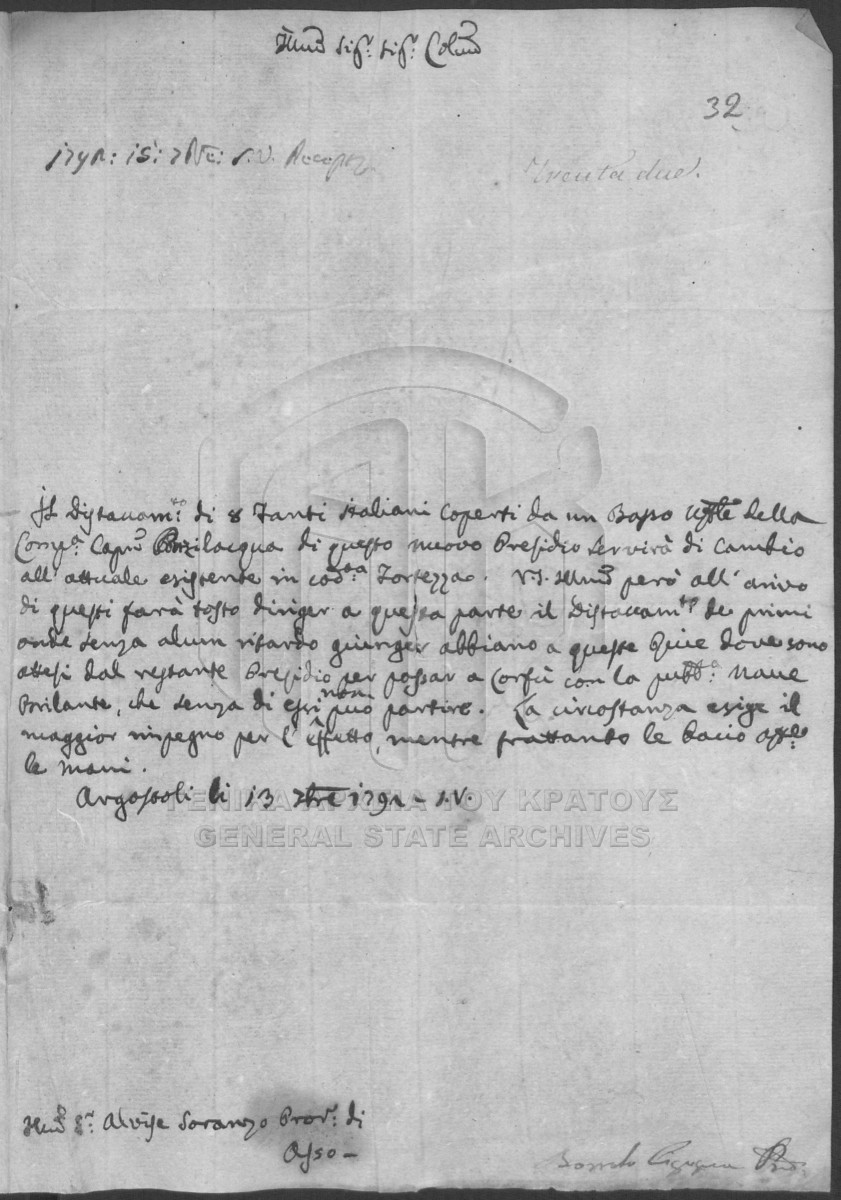 Illmo Sigr: Sigr: Colmo
32
1791: 15: 7bre: S.V. Recepta
Trenta due.
Il Distaccamto: di 8 Fanti Italiani coperti da un Basso Uffle della
Compa: Capnio Bevilacqua di questo nuovo Presidio servirà di Cambio
all'attuale esistente in codta Fortezza. V.S. Illma però all'arivo
di questi farà tosto diriger a questa parte il Distaccamto: de primi
onde senza alcun ritardo giunger abbiano a queste Rive dove sono
attesi dal restante Presidio per passar a Corfù con la pubba: Nave
Brilante, che senza di essi non può partire. La circostanza esige il
maggior impegno per l'effetto, mentre frattanto le bacio affte:
le mani.
Argostoli li 13 7bre 1791 - S.V.
ΓΕΝΙΚΑ ΑΡΧΕΙΑ ΤΟΥ ΚΡΑΤΟΥΣ
GENERAL STATE ARCHIVES
Illmo Sr: Alvise Soranzo Provr: di
Asso -